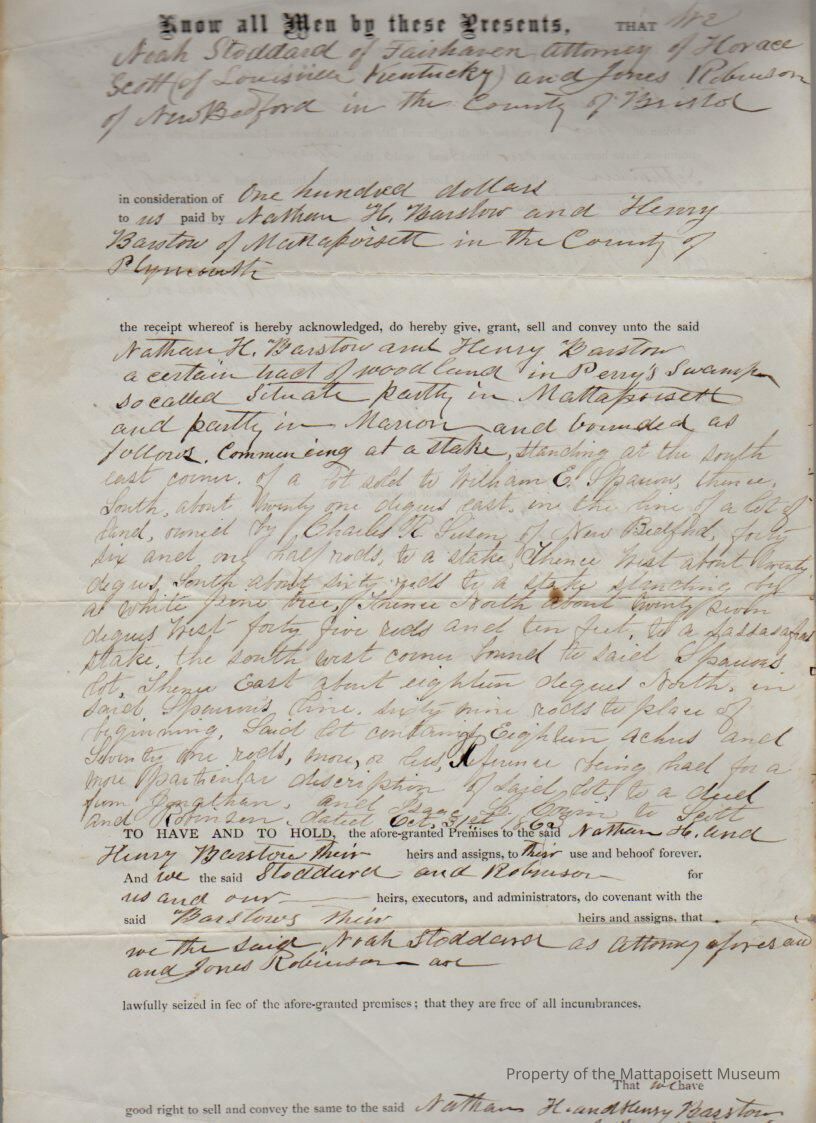 Know all Men by these Presents, THAT We
Noah Stoddard of Fairhaven attorney of Horace
Scott (of Louisville Kentucky) and Jones Robinson
of New Bedford in the County of Bristol
in consideration of One hundred dollars
to us paid by Nathan H. Barstow and Henry
Barstow of Mattapoisett in the County of
Plymouth
the receipt whereof is hereby acknowledged, do hereby give, grant, sell and convey unto the said
Nathan H. Barstow and Henry Barstow
a certain tract of woodland in Perry's Swamp
so called Situate partly in Mattapoisett
and partly in Marion and bounded as
follows. Commencing at a stake, standing at the south
east corner. of a lot sold to William E. Sparrow, thence,
South, about twenty one degrees east, in the line of a lot of
land, owned by Charles R. of New Bedford, forty
six and one half rods, to a stake, Thence West about twenty
degrees, South about sixty rods to a stake standing by
a white pine tree, Thence North about twenty seven
degrees West forty five rods and ten feet, to a sassasafras
stake, the south west corner bound to said Sparrows
lot, Thence East about eighteen degrees North, in
said Sparrows line. sixty nine rods to place of
beginning, Said lot containing Eighteen achers and
Seventy one rods, more, or less, Reference being had for a
more particular discription of said lot, to a deed
from Jonathan, and Isaac to Scott
and Robinson. dated Oct. 31st 1862
TO HAVE AND TO HOLD, the afore-granted Premises to the said Nathan H. and
Henry Barstow their heirs and assigns, to their use and behoof forever.
And we the said Stoddard and Robinson for
us and our heirs, executors, and administrators, do covenant with the
said Barstows their heirs and assigns, that
we the said Noah Stoddard as attorney aforesaid
and Jones Robinson are
lawfully seized in fee of the afore-granted premises; that they are free of all incumbrances,
Property of the Mattapoisett Museum
That we have
good right to sell and convey the same to the said Nathan H. and Henry Barstow